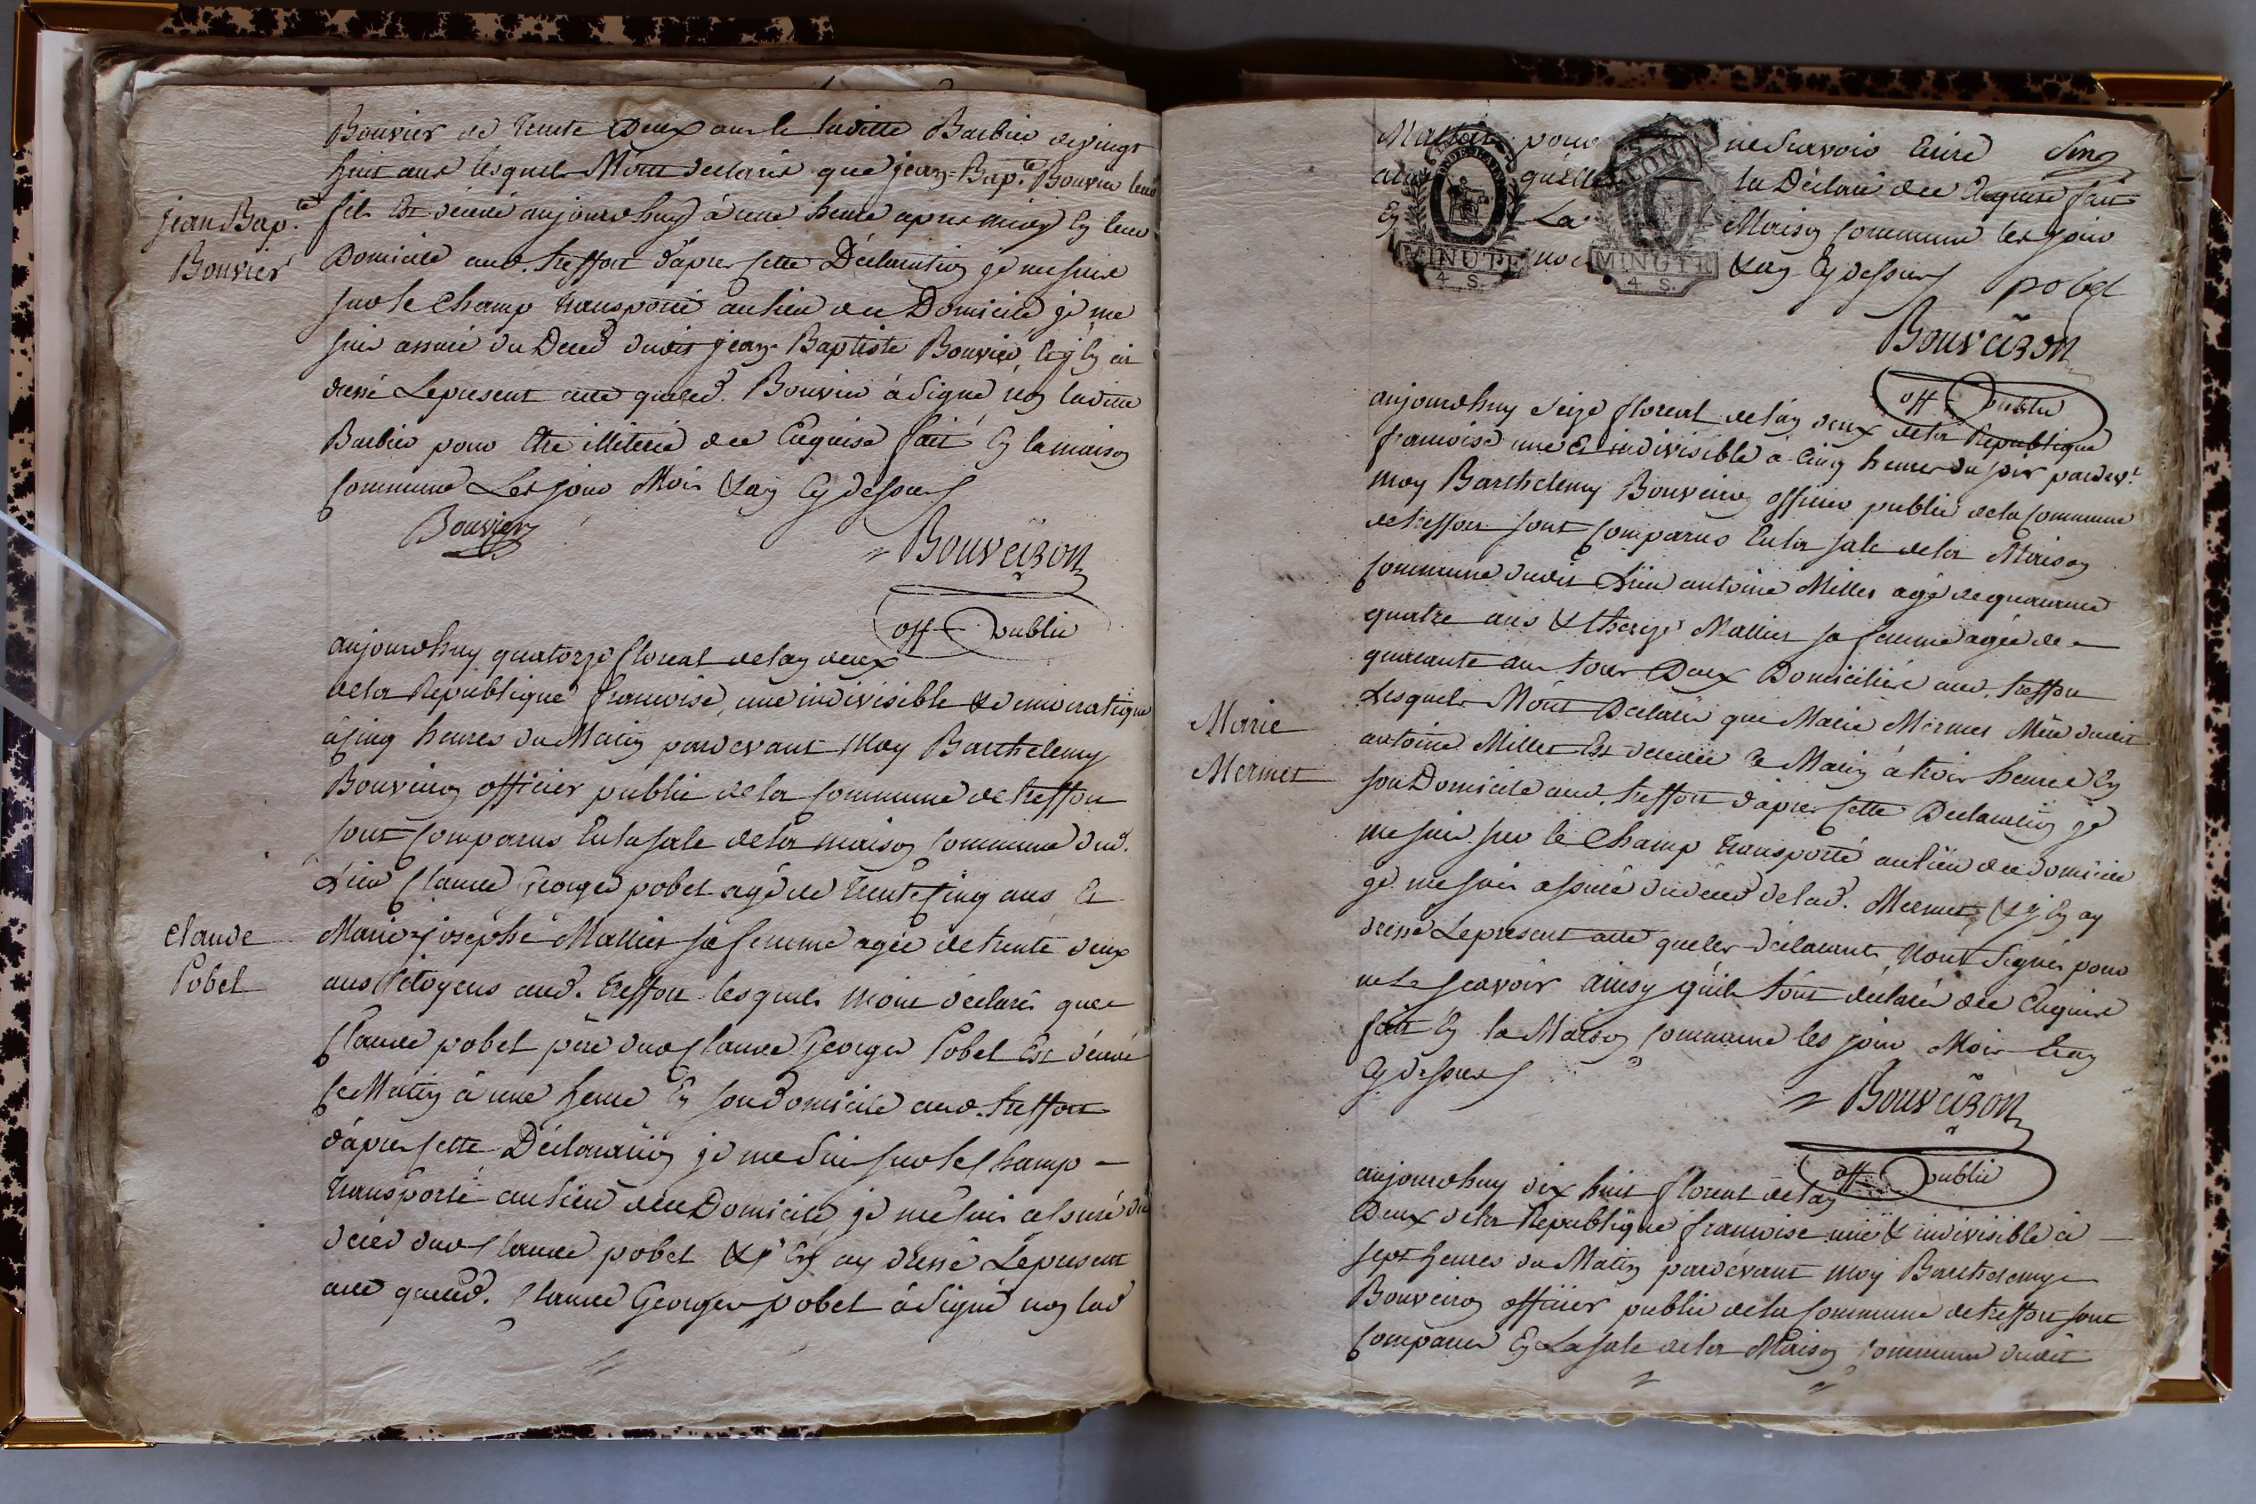 Bouvier de trente Deux ans & laditte Barbier de vingt
huit ans lesquels M'ont declaré que jean-Bap.te Bouvier leur
jean Bap.te
Bouvier
fils Est décédé aujourdhuy à une heure apres midy En leur
Domicile aud. treffort d'apres cette Déclaration je me suis
sur le Champ transporté au lieu du Domicile je me
suis assuré du Deced dudit jean Baptiste Bouvier, & j'en ai
dressé Le present acte que led. Bouvier à Signé non laditte
Barbier pour être illétéré de ce Enquise fait En la maison
Commune Les jour Mois & an Cy dessus
Bouvier
Bouveiron
off. public
aujourdhuy quatorze floreal de lan deux
de la Republique francoise, une indivisible & democratique
à cinq heures du Matin pardevant Moy Barthelemy
Bouveiron officier public de la Commune de treffort
sont Comparus En la sale de la maison Commune dud.
Lieu Claude George pobel agé de trente cinq ans Et
Claude
Pobel
Marie josephe Mallier sa femme agée de trente deux
ans Citoyens aud. treffort lesquels m'ont déclaré que
Claude pobel père dud Claude George Pobel Est décédé
Ce Matin à une heure En son Domicile aud. treffort
d'apres cette Déclaration je me Suis sur le Champ
transporté au lieu du Domicile je me suis assuré du
deces dud Claude pobel & j'En ay dressé Le present
acte que led. Claude George pobel à Signé non lad
Mallier pour ne Scavoir Ecrire
qu'elle la Déclaré de ce Requise fait
En La Maison Commune les jour
MINUTE
4. S.
MINUTE
4. S.
& an Cy dessus pobel
Bouveiron
off. public
aujourdhuy Seize floreal de lan deux de la Republique
francoise une Et indivisible à Cinq heures du soir pardev.t
moy Barthelemy Bouveiron officier public de la Commune
de treffort sont Comparus En la sale de la Maison
Commune dudit Lieu antoine Millet agé de quarante
quatre ans & thereze Mallier sa femme agée de
quarante ans tous Deux Domiciliés aud. treffort
Lesquels M'ont Déclaré que Marie Mermet Mère dudit
Marie
Mermet
antoine Millet Est decedée Ce Matin à trois heures En
son Domicile aud. treffort d'apres cette Declaration je
me suis sur le Champ transporté au lieu du domicile
je me suis assuré du deced de lad. Mermet, & j'En ay
dressé Le present acte que les déclarants N'ont Signés pour
ne Le scavoir ainsy qu'ils l'ont déclaré de ce Enquis
fait En la Maison Commune les jour Mois & an
Cy dessus
Bouveiron
off. public
aujourdhuy dix huit floreal de lan
Deux de la Republique francoise une & indivisible à
sept heures du Matin pardevant moy Barthelemy
Bouveiron officier public de la Commune de treffort sont
Comparus En La sale de la Maison Commune dudit